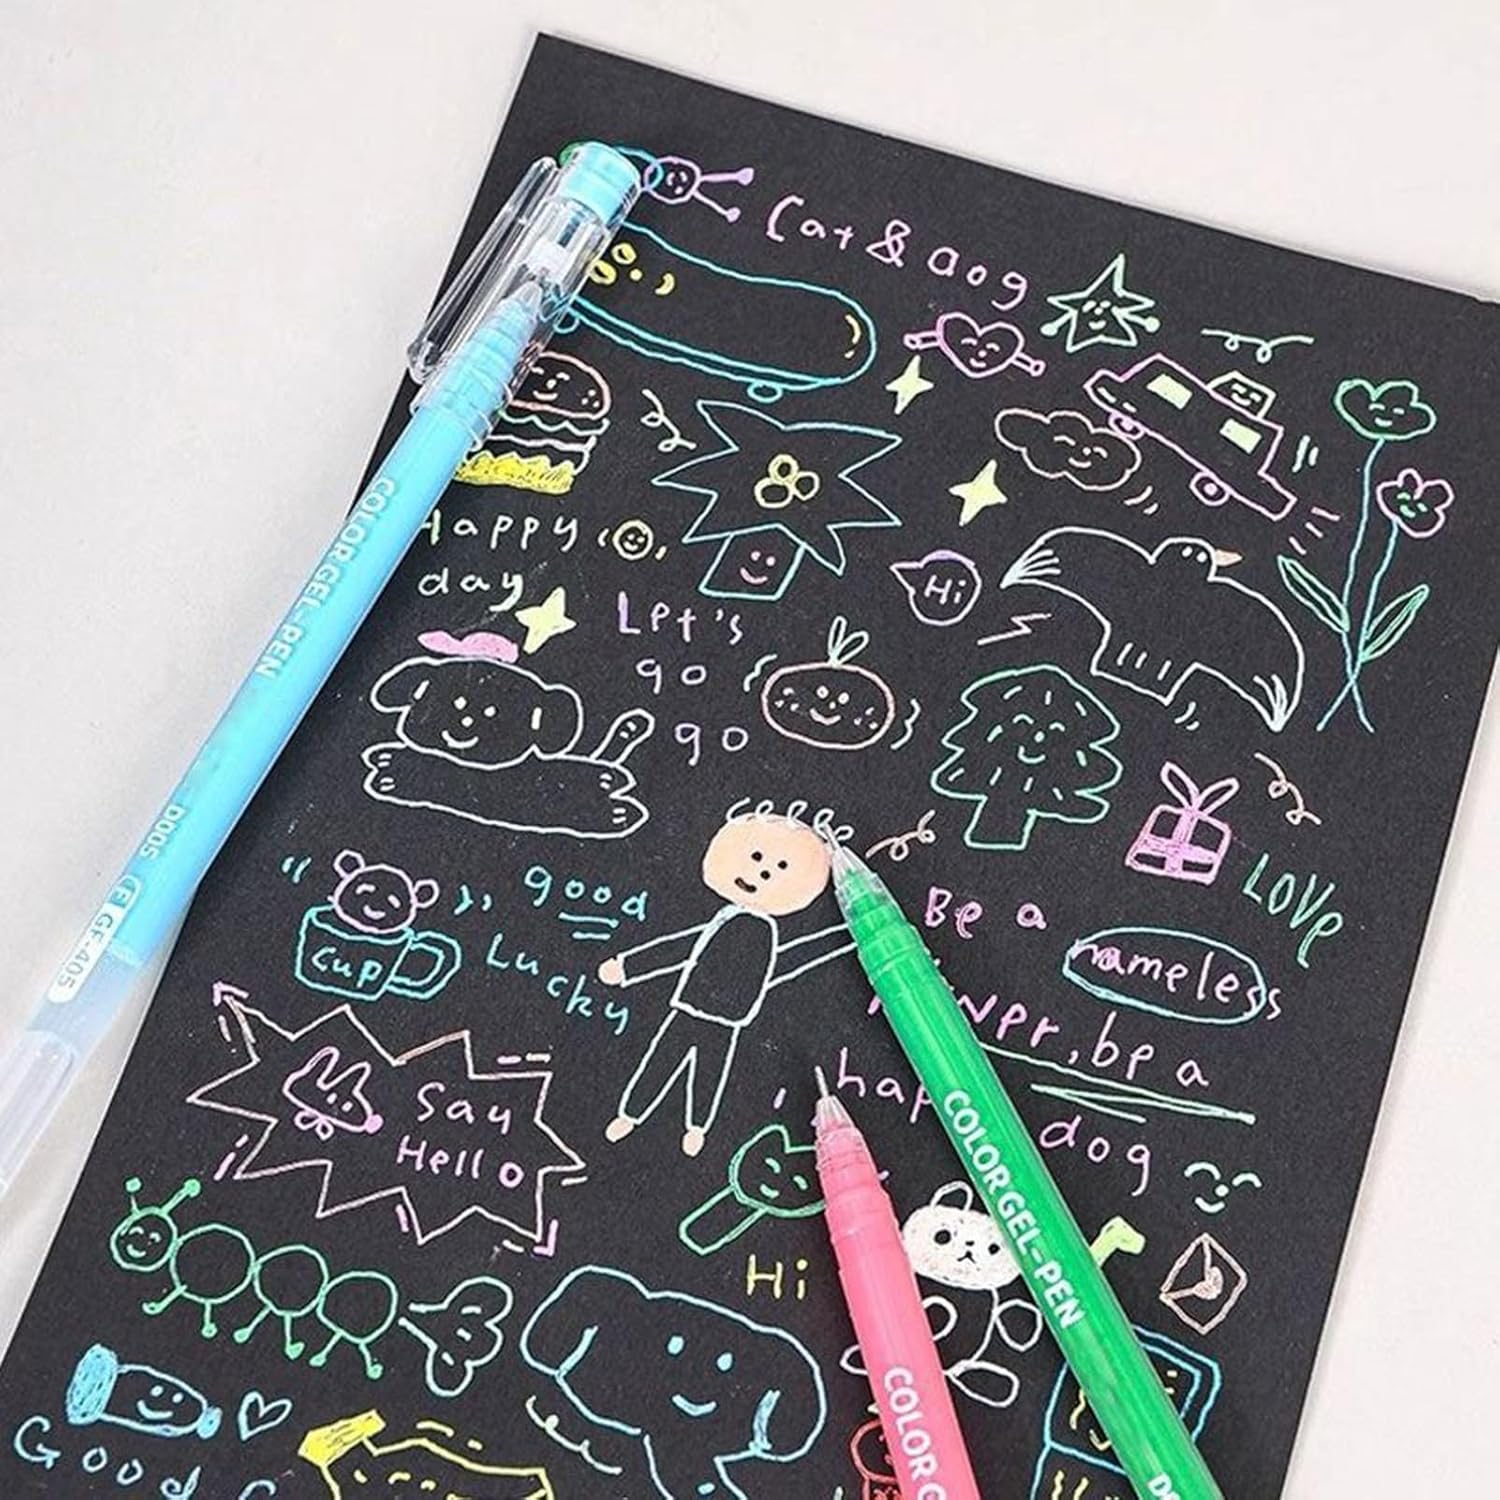 Cat & dog
Happy
day
Let's
go
go
Hi
LOVE
good
Lucky
cup
Be a
nameless
be a
dog
Say
Hello
Hi
Good
COLOR GEL-PEN
D005
F GF2405
COLOR GEL-PEN
COLOR G